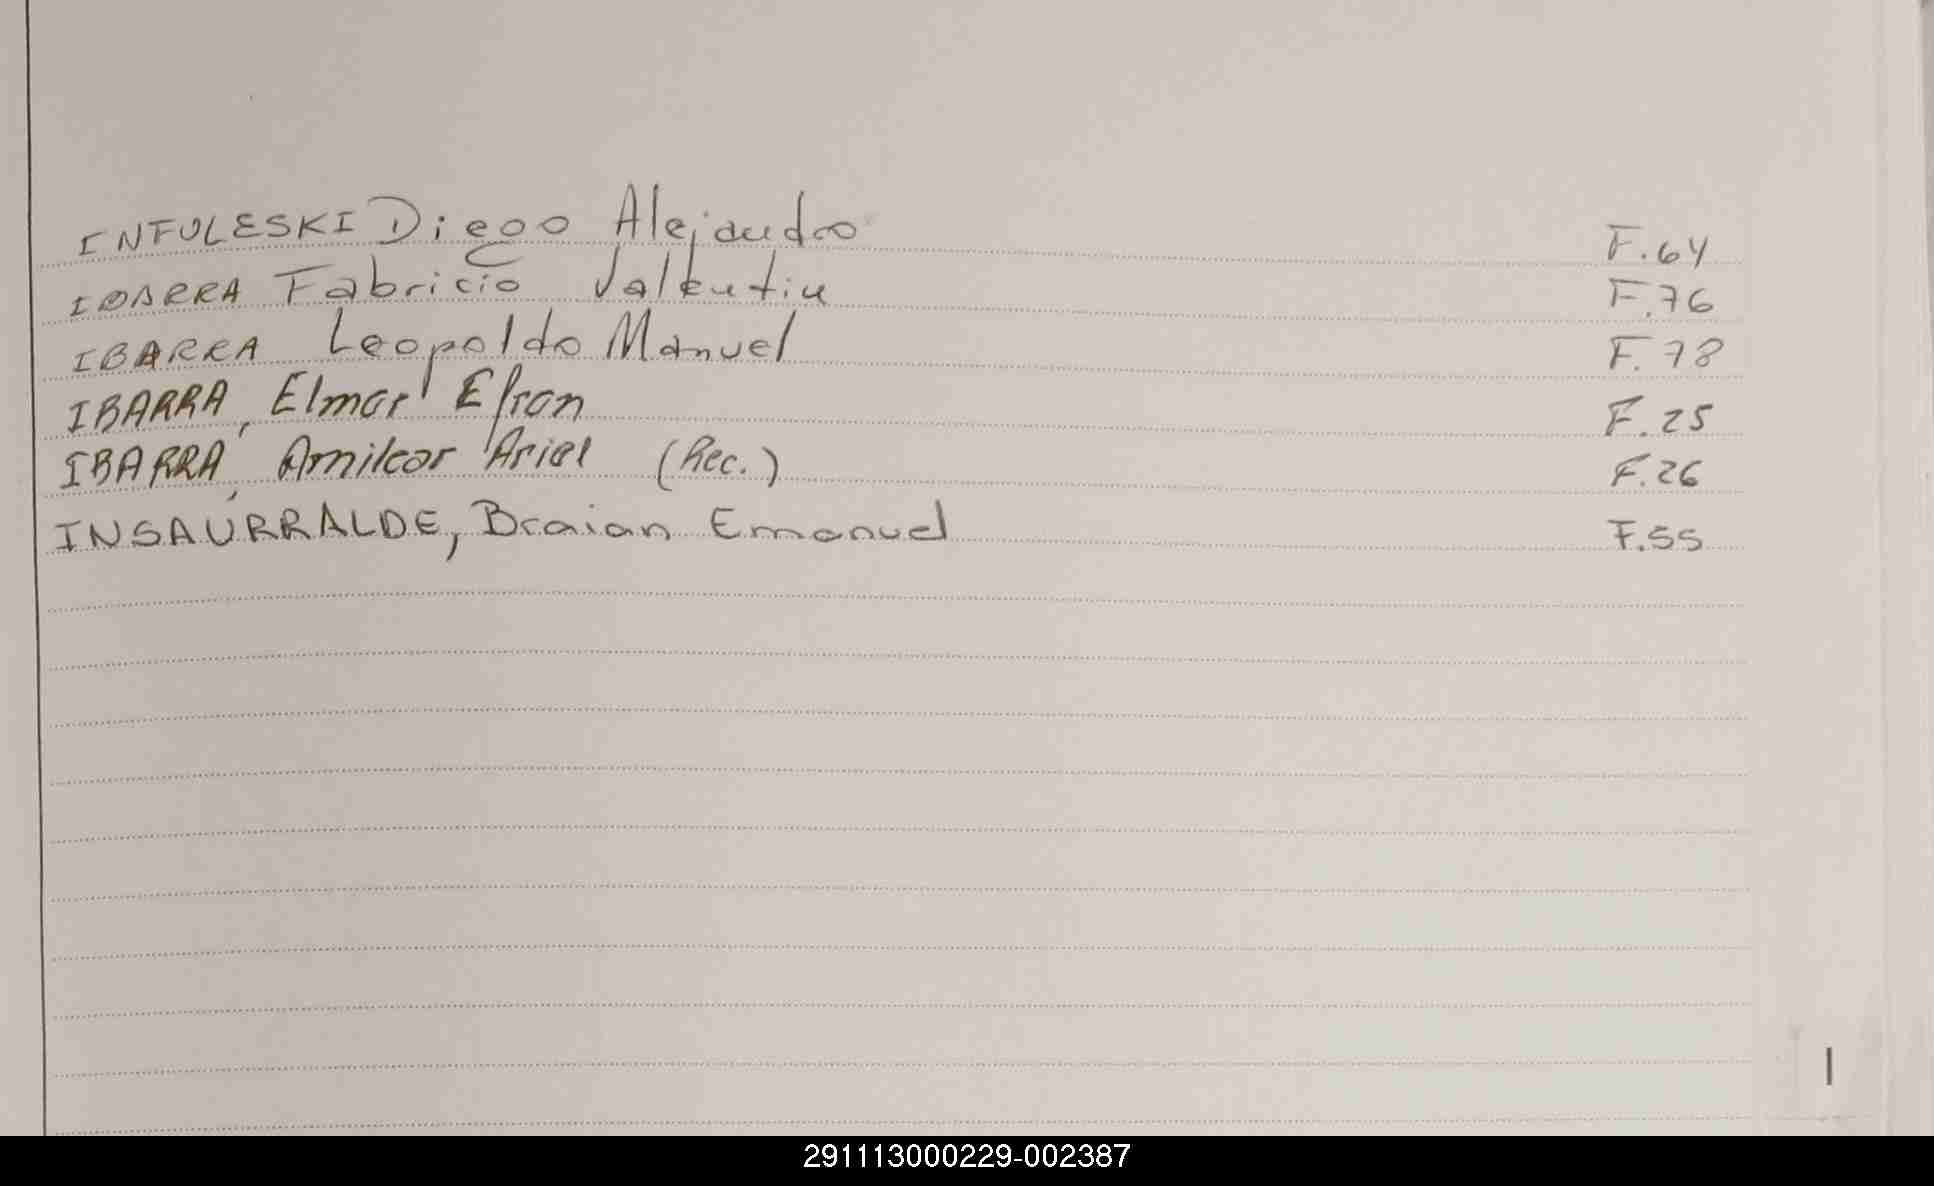 INFULESKI Diego Alejandro F.64
IBARRA Fabricio Valentin F.76
IBARRA Leopoldo Manuel F.78
IBARRA, Elmar Efran F.25
IBARRA, Amilcar Ariel (Rec.) F.26
INSAURRALDE, Braian Emanuel F.55
I
291113000229-002387